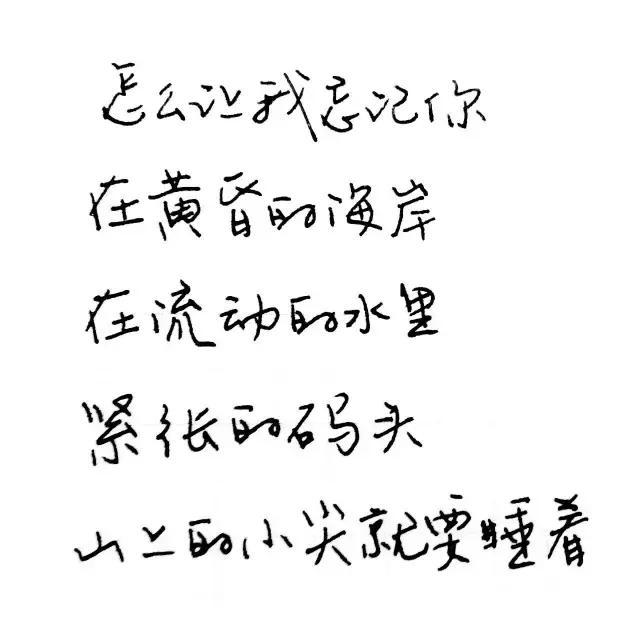 怎么让我忘记你
在黄昏的海岸
在流动的水里
紧张的码头
山上的小尖就要睡着